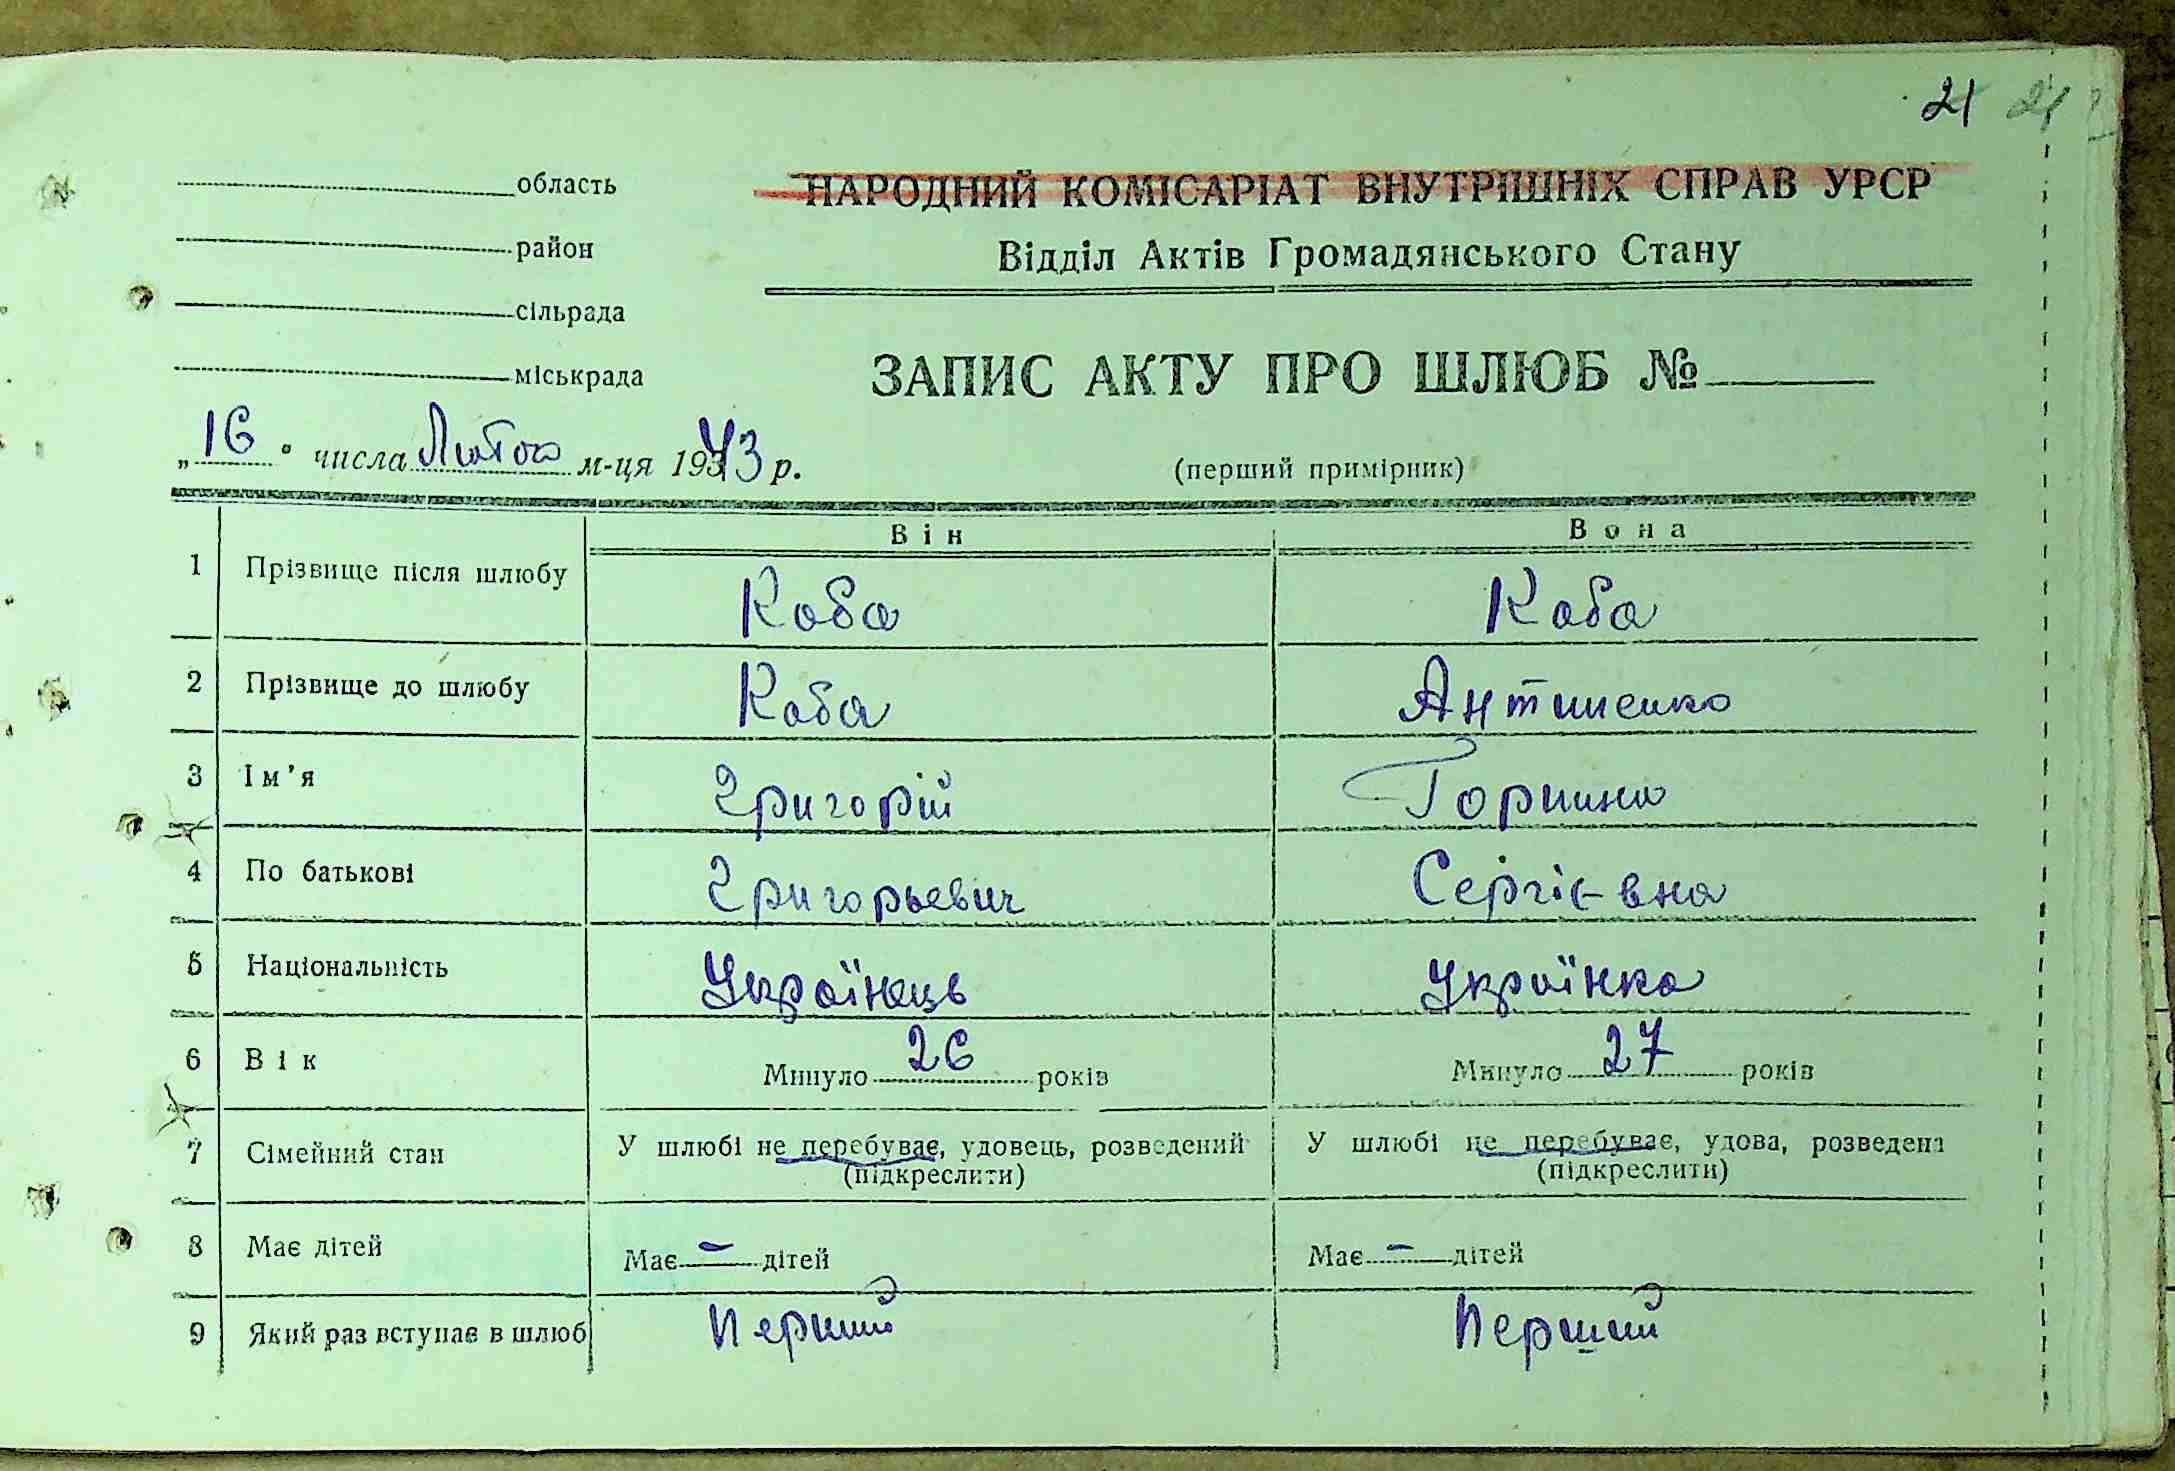 21 21
область
район
сільрада
міськрада
НАРОДНИЙ КОМІСАРІАТ ВНУТРІШНІХ СПРАВ УРСР
Відділ Актів Громадянського Стану
ЗАПИС АКТУ ПРО ШЛЮБ №
„16" числа Лютого м-ця 1943 р.
(перший примірник)
Він Вона
1 Прізвище після шлюбу Коба Коба
2 Прізвище до шлюбу Коба Антипенко
3 Ім'я Григорій Горпина
4 По батькові Григорьевич Сергієвна
5 Національність Українець Українка
6 Вік Минуло 26 років Минуло 27 років
7 Сімейний стан У шлюбі не перебуває, удовець, розведений У шлюбі не перебуває, удова, розведена
(підкреслити) (підкреслити)
8 Має дітей Має – дітей Має – дітей
9 Який раз вступає в шлюб Перший Перший